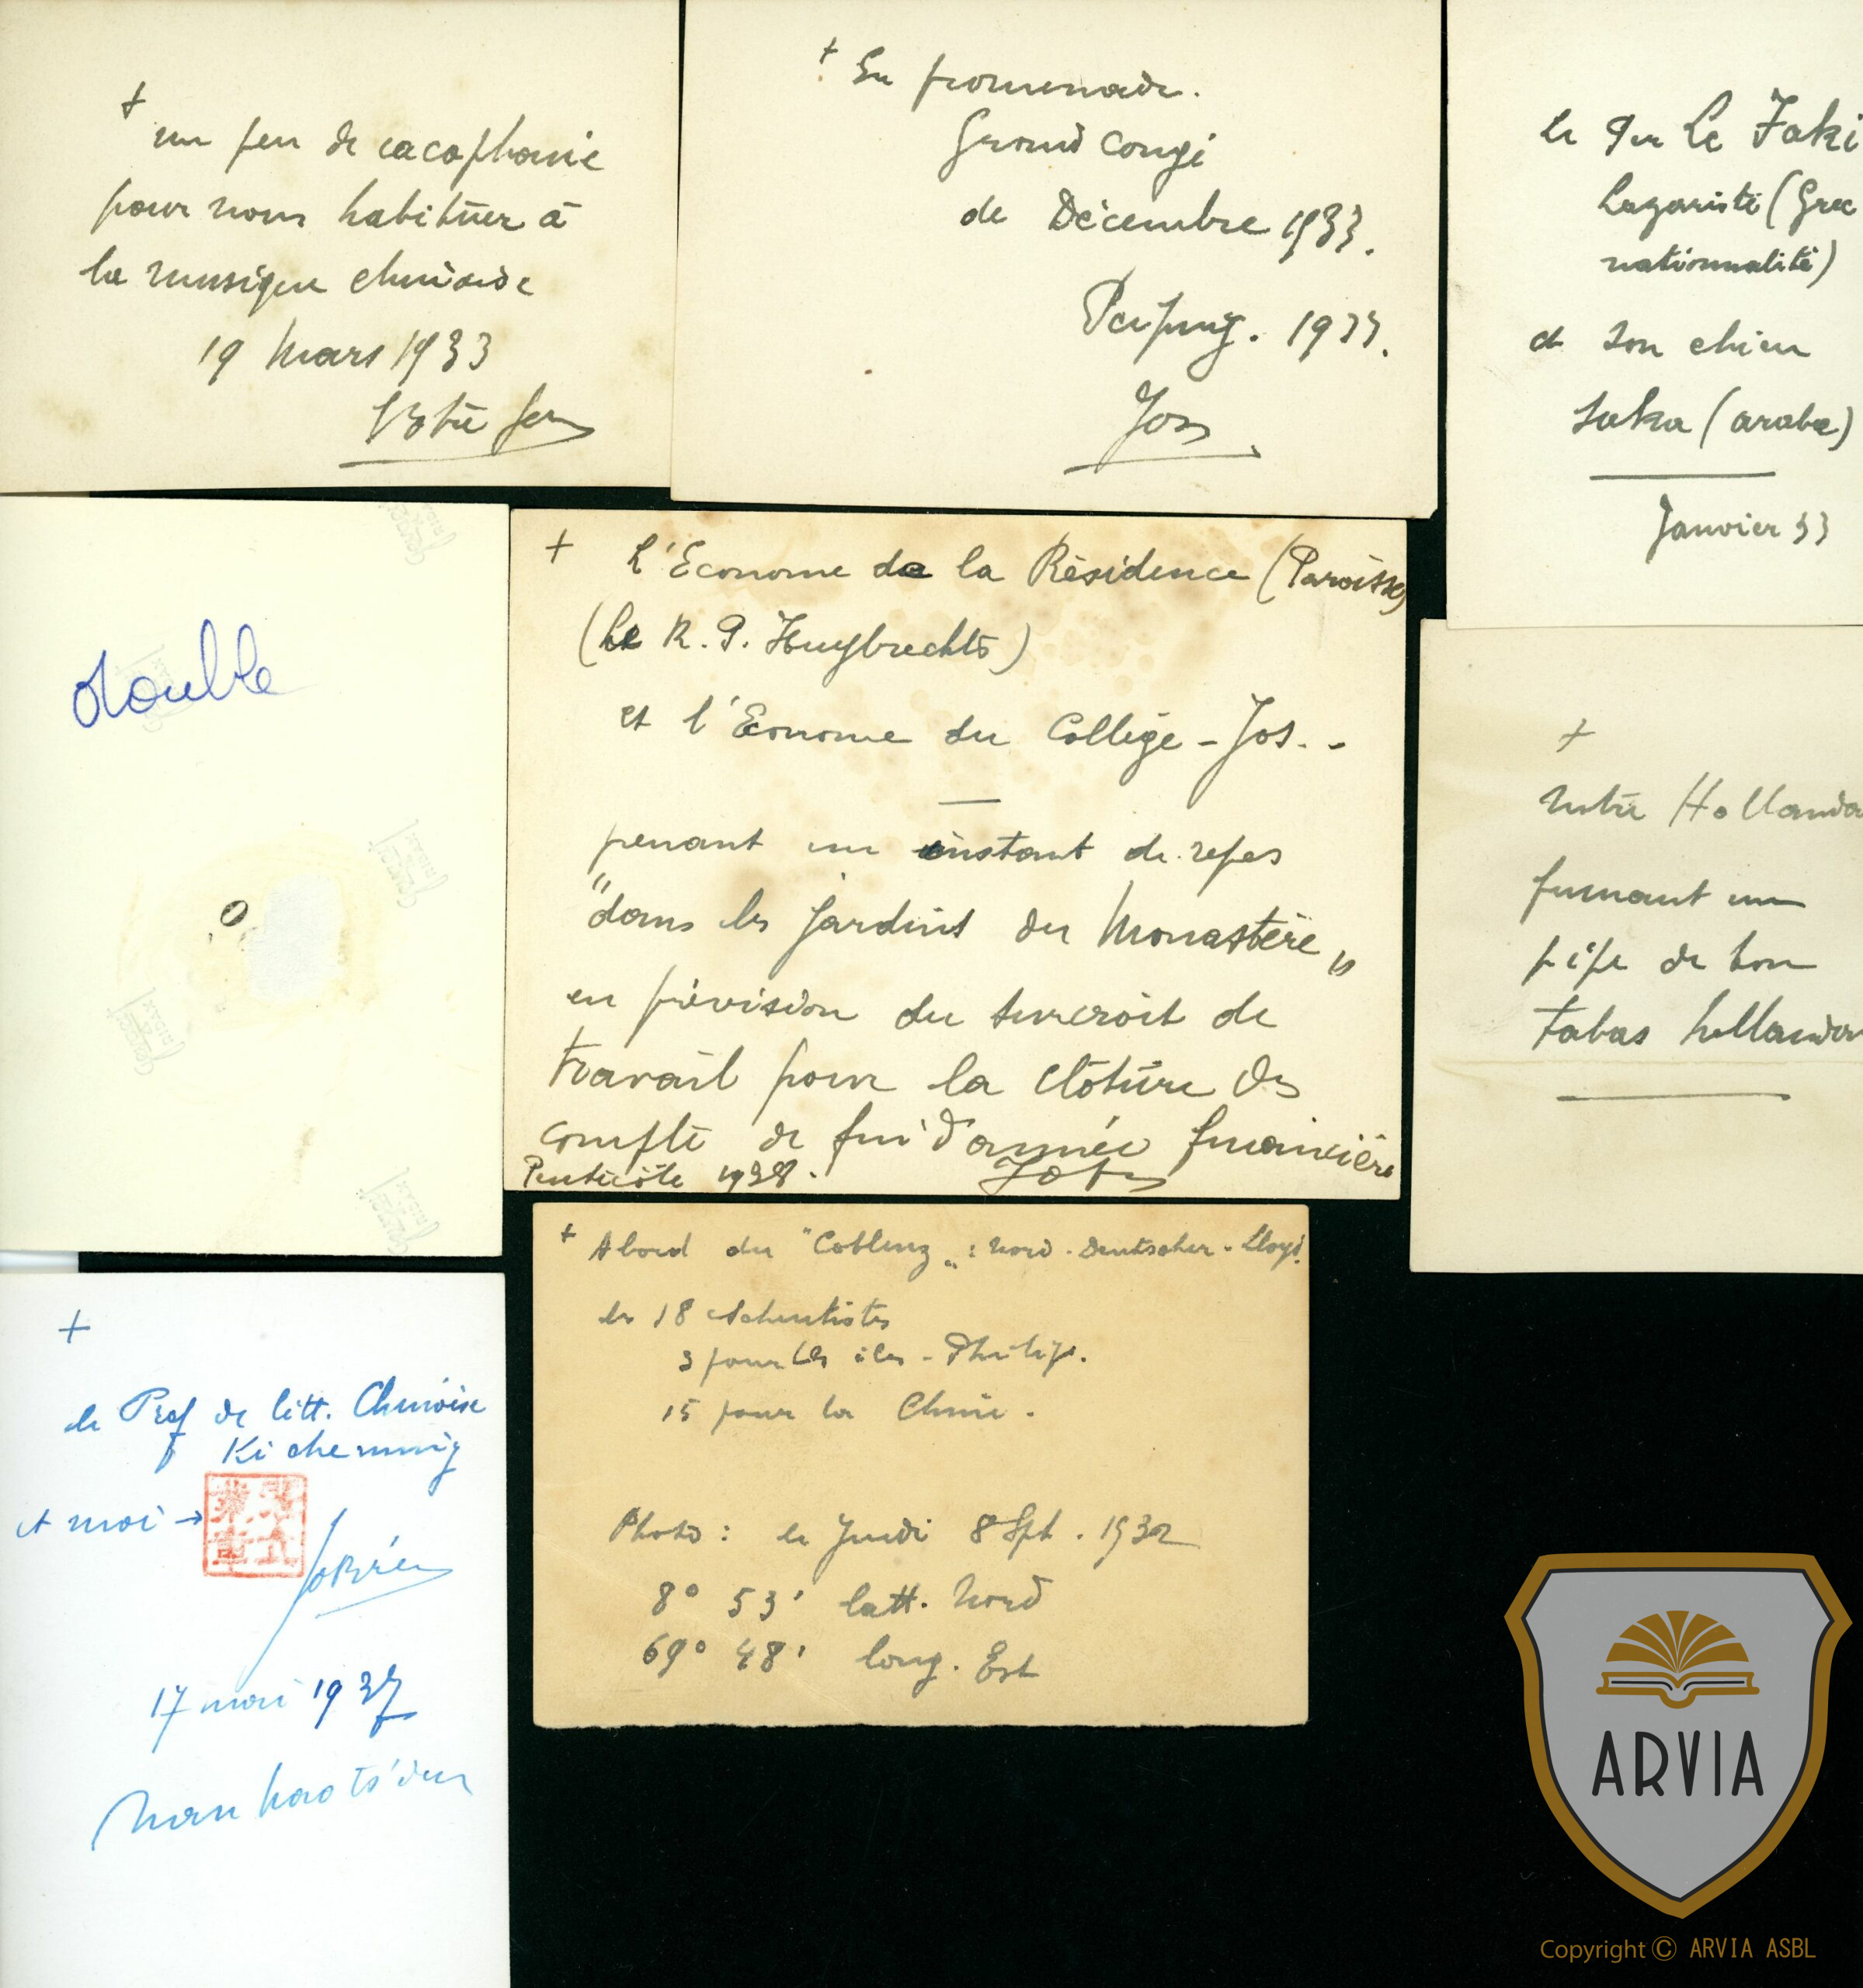 +
un peu de cacophonie
pour nous habituer à
la musique chinoise
19 Mars 1933
Votre
+ En promenade.
Grand Congé
de Décembre 1933.
Peiping. 1933.
Jos
le Le Zaki
Lazariste (Grec
nationnalité)
et son chien
(arabe)
Janvier 33
double
+ L'Econome de la Résidence (Paroisse)
(Le R. P. Huybrechts)
et l'Econome du Collège - Jos. -
penant un instant de repos
"dans les jardins du Monastère"
en prévision du surcroit de
travail pour la clôture des
compte de fin d'année financière
Pentecôte 1938. Jos
+
notre Hollanda
fumant une
pipe de bon
tabas hollandai
+
le Prof de litt. Chinoise
Ki
et moi →
17 mai 1937
+ A bord du "Coblenz" : Nord-Deutscher-Lloyd.
les 18 scheutistes
3 pour les iles-Philip.
15 pour la Chine.
Photo : le Jeudi 8 Sept. 1932
8° 53' latt. Nord
69° 48' long. Est
ARVIA
Copyright © ARVIA ASBL